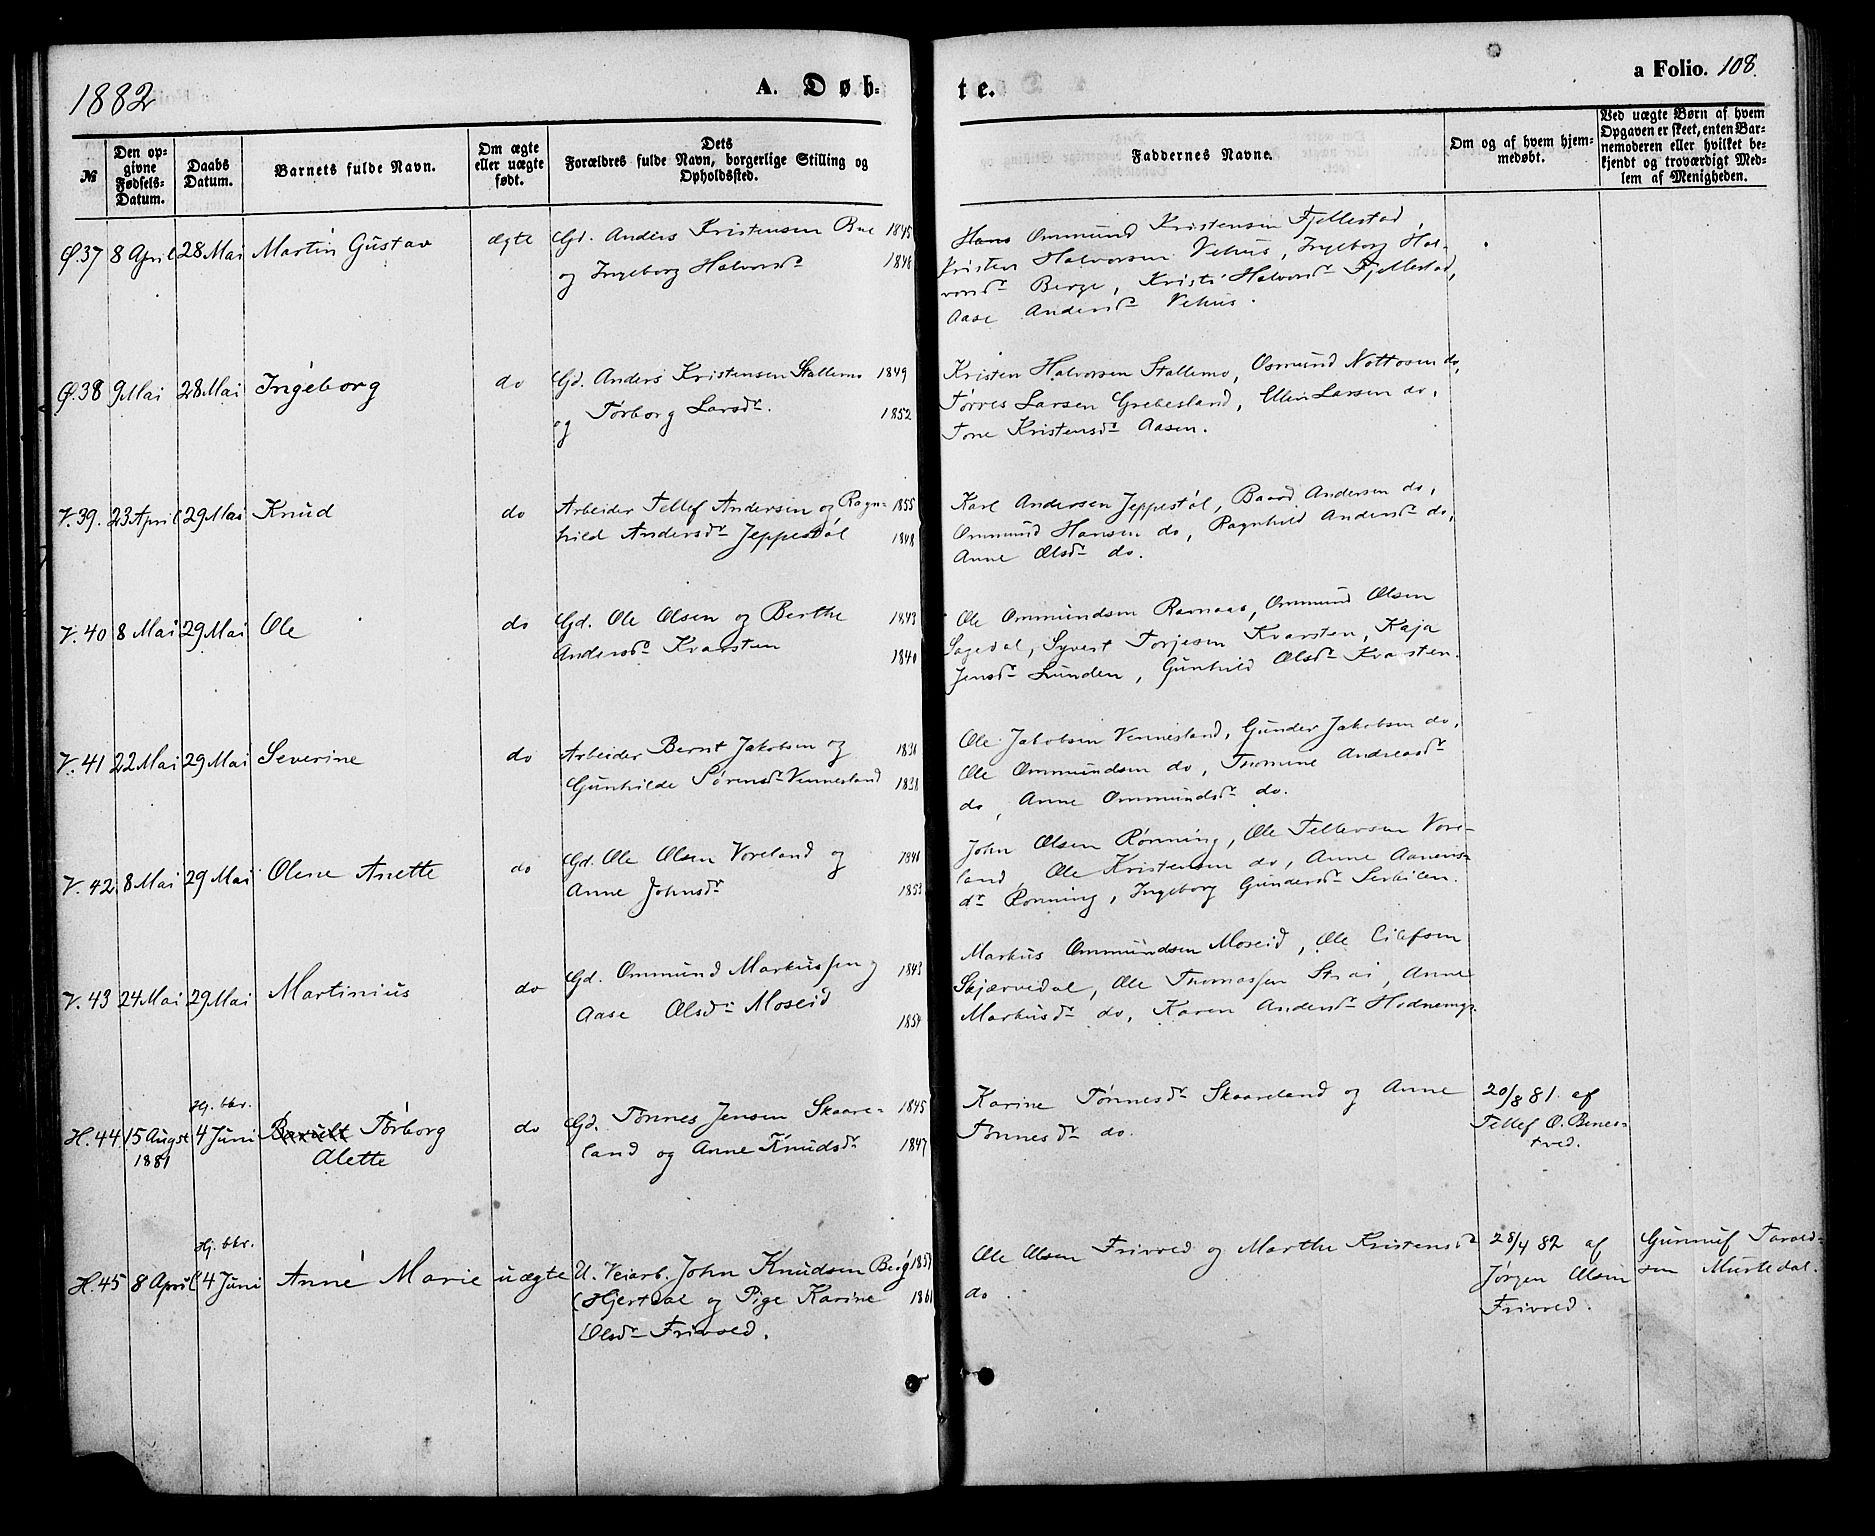 1882
A. Døb-
te.
a Folio. 108.
№
Den op-
givne
Fødsels-
Datum.
Daabs
Datum.
Barnets fulde Navn.
Om ægte
eller uægte
født.
Dets
Forældres fulde Navn, borgerlige Stilling og
Opholdssted.
Faddernes Navne.
Om og af hvem hjem-
medøbt.
Ved uægte Børn af hvem
Opgaven er skeet, enten Bar-
nemoderen eller hvilket be-
kjendt og troværdigt Med-
lem af Menigheden.
Ø.37 8 April 28 Mai Martin Gustav ægte Gd. Anders Kristensen 1845
og Ingeborg Halvorsdr 1846
Hans Ommund Kristensen Fjellestad,
Kristen Halvorsen Vehus, Ingeborg Hal-
vorsdr Berge, Kristi Halvorsdr Fjellestad,
Aase Andersdr Vehus.
Ø.38 9 Mai 28 Mai Ingeborg do Gd. Anders Kristensen Stallemo 1849
og Torborg Larsdr. 1852
Kristen Halvorsen Stallemo, Osmund Nottosen do,
Tørres Larsen Grebesland, Ellen Larsen do,
Tone Kristensdr Aasen.
V.39. 23 April 29 Mai Knud do Arbeider Tellef Andersen og Ragn- 1855
hild Andersdr Jeppestøl 1848
Karl Andersen Jeppestøl, Baard Andersen do,
Ommund Hansen do, Ragnhild Andersdr do,
Anne Olsdr do.
V.40 8 Mai 29 Mai Ole do Gd. Ole Olsen og Berthe 1843
Andersdr Kvarsten 1840
Ole Ommundsen Ravnaas, Ommund Olsen
Sagedal, Syvert Torjesen Kvarsten, Kaja
Jensdr Lunden, Gunhild Olsdr Kvarsten.
V.41 22 Mai 29 Mai Severine do Arbeider Bernt Jakobsen og
Gunhilde Sørensdr Vennesland 1838
Ole Jakobsen Vennesland, Gunder Jakobsen do,
Ole Ommundsen do, Thomine Andreasdr
do, Anne Ommundsdr do.
V.42 8 Mai 29 Mai Olene Anette do Gd. Ole Olsen Voreland og 1846
Anne Johnsdr 1853
John Olsen Rønning, Ole Tellevsen Vore-
land, Ole Kristensen do, Anne Aanens-
dr Rønning, Ingeborg Gundersdr
V.43 24 Mai 29 Mai Martinius do Gd. Ommund Markussen og 1843
Aase Olsdr Moseid 1854
Markus Ommundsen Moseid, Ole Eilefsen
Skjærvedal, Ole Thomassen Strai, Anne
Markusdr do, Karen Andersdr
Hj. bkr.
H.44 15 Augst 4 Juni Torborg do Gd. Tønnes Jensen Skaare- 1845
1881 Alette land og Anne Knudsdr 1847
Karine Tønnesdr Skaareland og Anne
Tønnesdr do.
20/8 81. af
Tellef O. Benes-
tved.
Hj. bkr.
H.45 8 April 4 Juni Anne Marie uægte U. Veiarb. John Knudsen Berg 1857
(Hjertdal og Pige Karine 1861
Olsdr Frivold.
Ole Olsen Frivold og Marthe Kristensdr
do.
28/4 82 af
Jørgen Olsen
Frivold.
Gunnuf Tarald-
sen Mustedal.